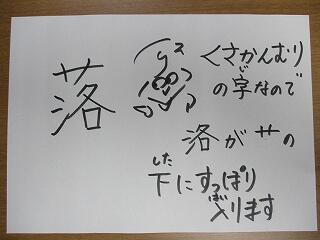 落
くさかんむり
の字なので
じ
洛が艹の
した
下にすっぽり
入ります
はい